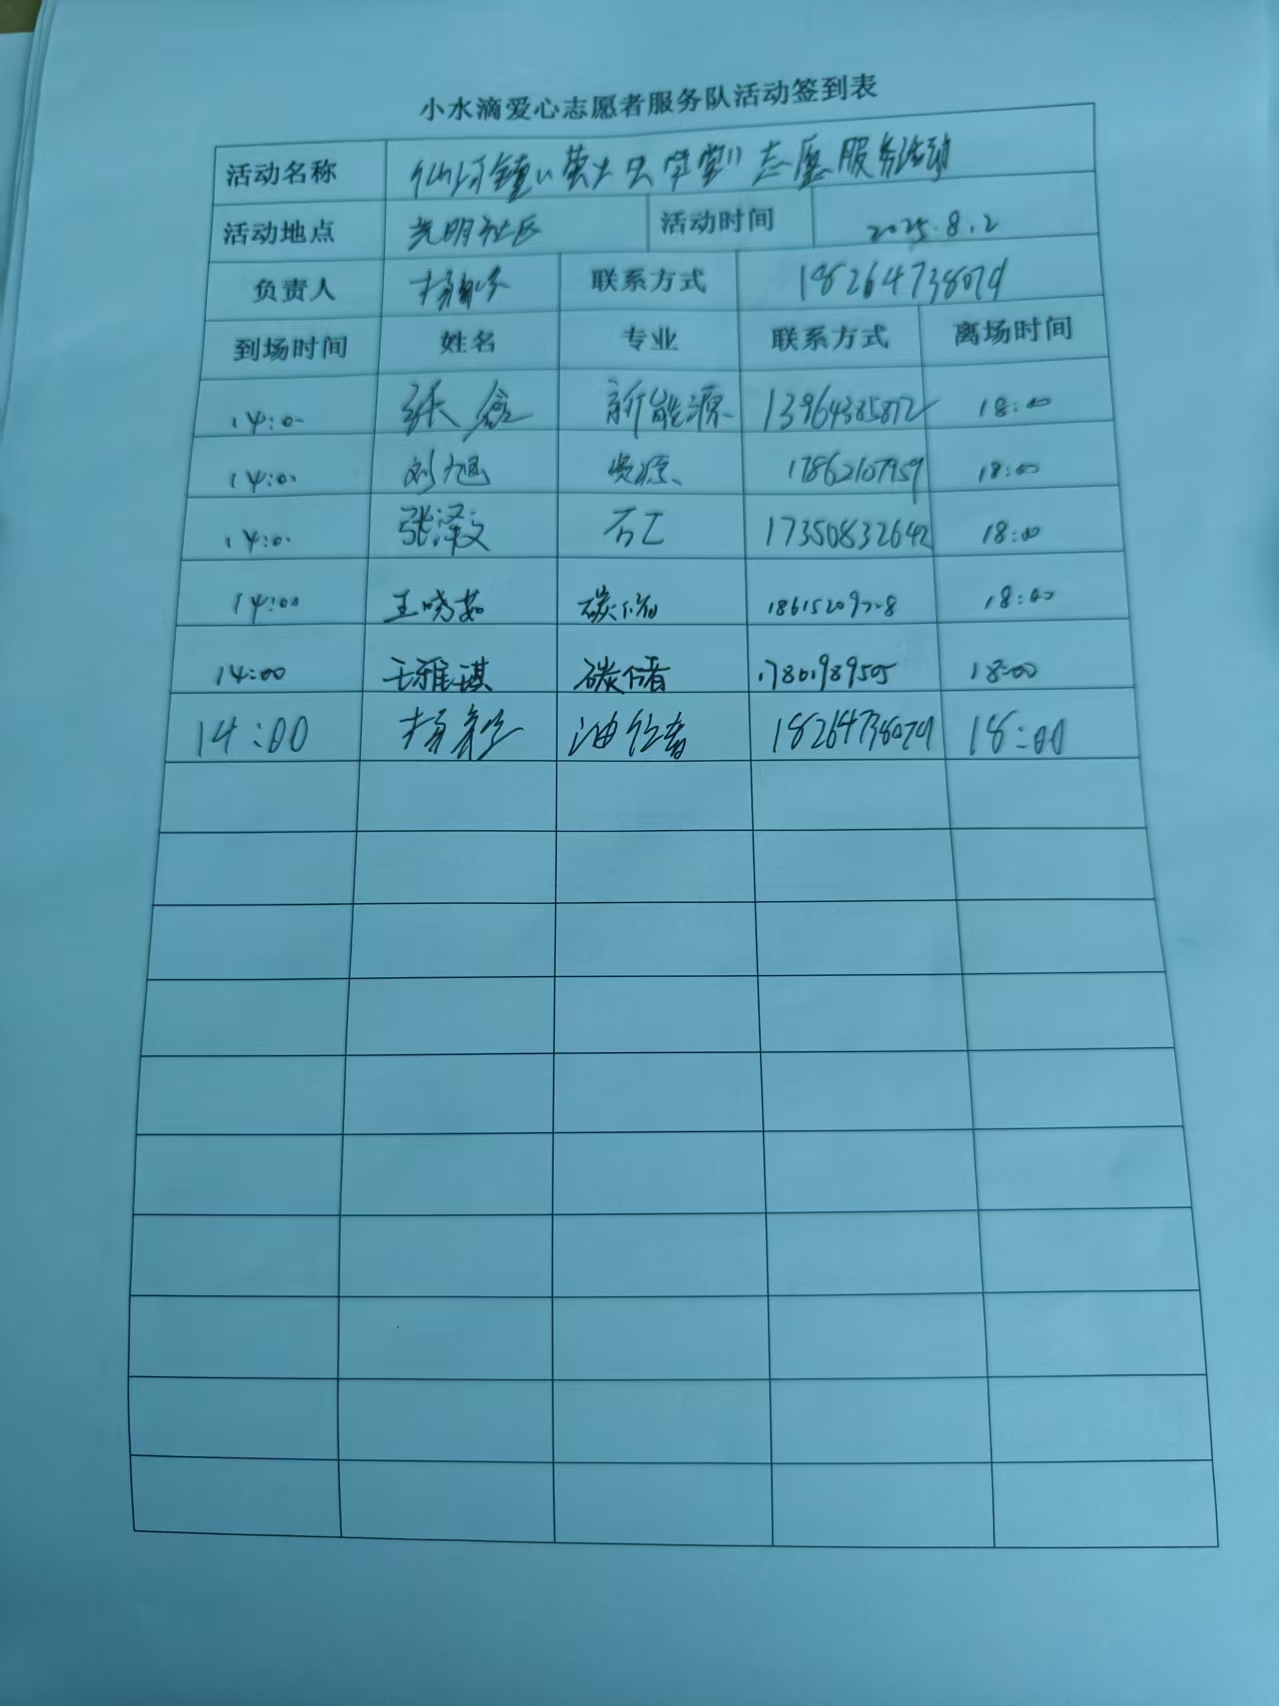 小水滴爱心志愿者服务队活动签到表
活动名称 仙河镇“萤火虫学堂”志愿服务活动
活动地点 光明社区 活动时间 2025.8.2
负责人 杨 联系方式 18264738079
到场时间 姓名 专业 联系方式 离场时间
14:00 张鑫 新能源 13964385872 18:00
14:00 刘旭 资源 17862107959 18:00
14:00 张泽文 石工 17350832642 18:00
14:00 王晓茹 碳储 18:00
14:00 王雅琪 碳储 17801989505 18:00
14:00 杨 油储 18264738079 18:00